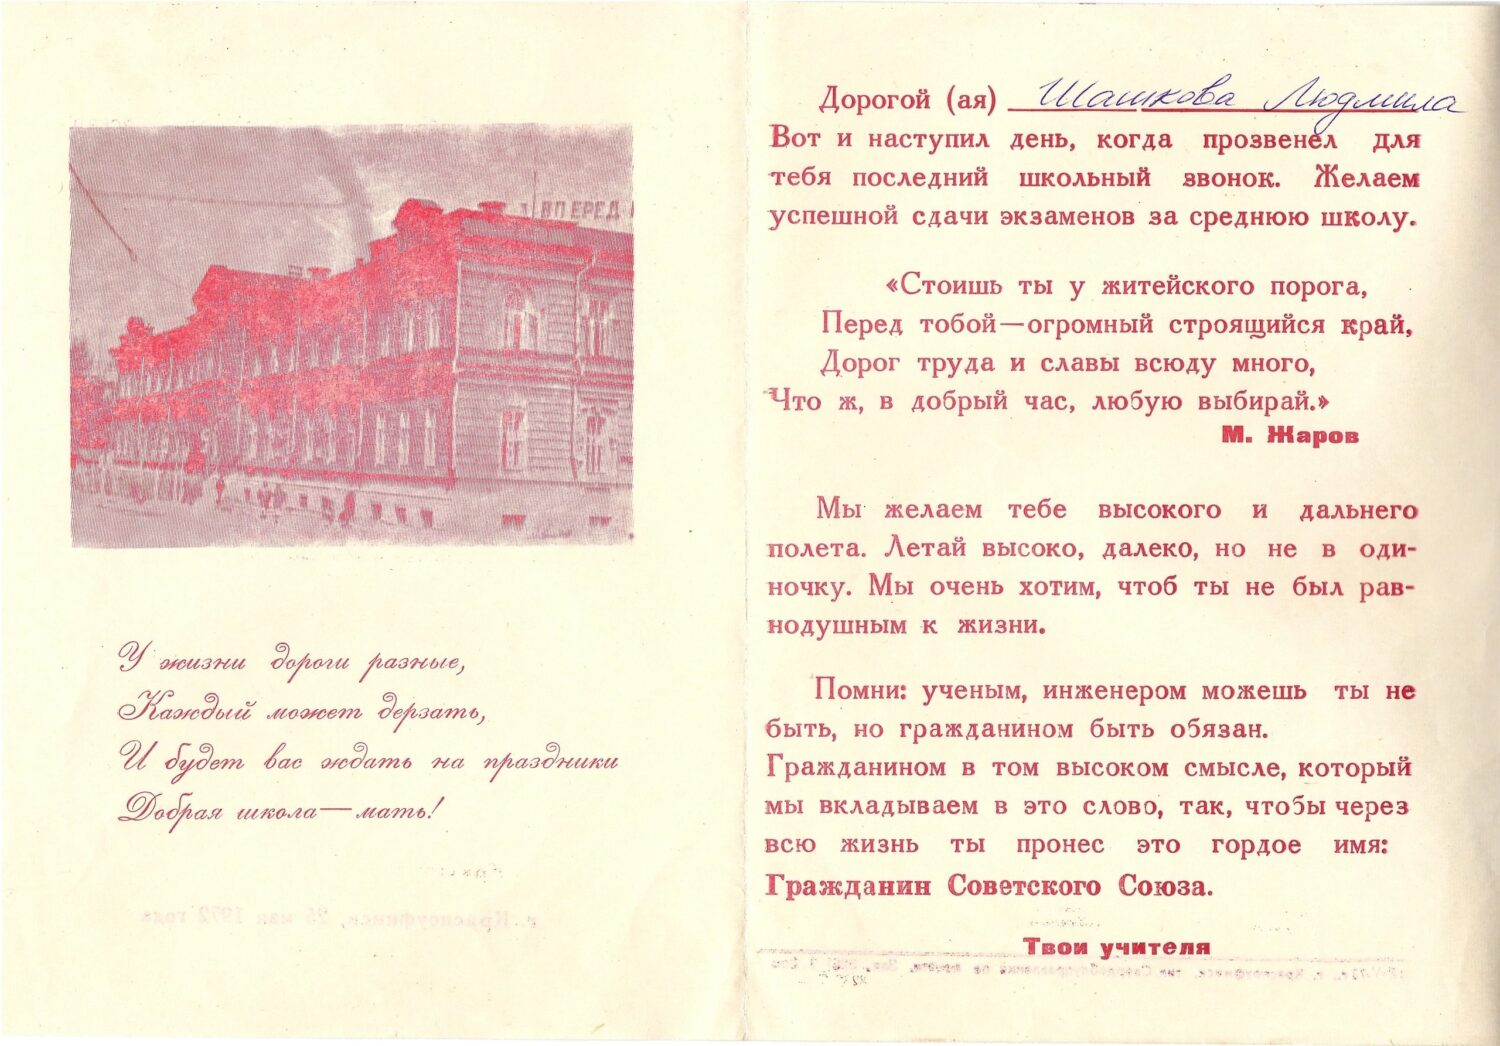 ВПЕРЕД
У жизни дороги разные,
Каждый может дерзать,
И будет вас ждать на праздники
Добрая школа—мать!
г. Красноуфимск, 25 мая 1972 года
Дорогой (ая) Шашкова Людмила
Вот и наступил день, когда прозвенел для
тебя последний школьный звонок. Желаем
успешной сдачи экзаменов за среднюю школу.
«Стоишь ты у житейского порога,
Перед тобой—огромный строящийся край,
Дорог труда и славы всюду много,
Что ж, в добрый час, любую выбирай.»
М. Жаров
Мы желаем тебе высокого и дальнего
полета. Летай высоко, далеко, но не в оди-
ночку. Мы очень хотим, чтоб ты не был рав-
нодушным к жизни.
Помни: ученым, инженером можешь ты не
быть, но гражданином быть обязан.
Гражданином в том высоком смысле, который
мы вкладываем в это слово, так, чтобы через
всю жизнь ты пронес это гордое имя:
Гражданин Советского Союза.
Твои учителя